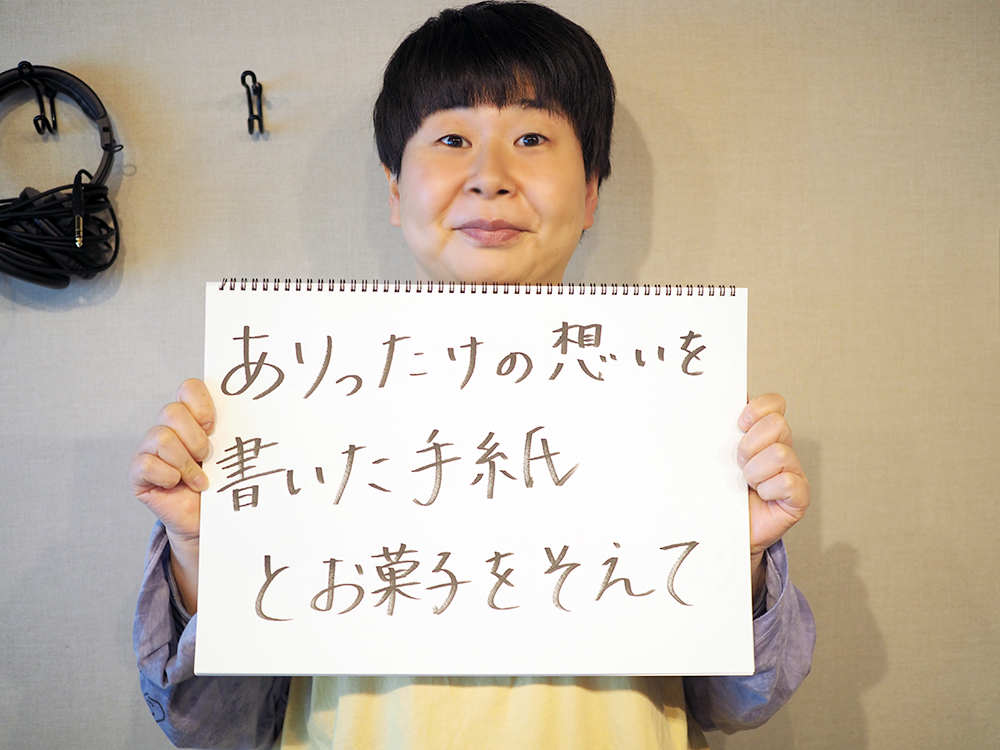 ありったけの想いを
書いた手紙
とお菓子をそえて